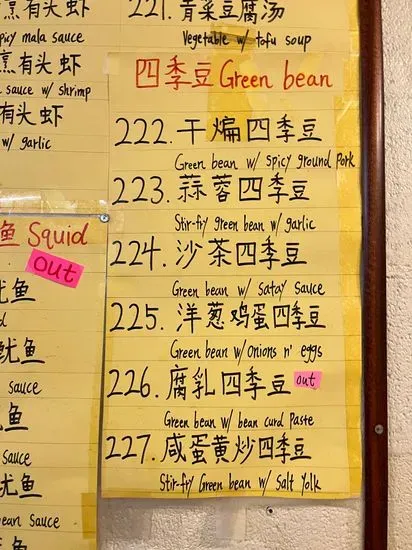 烹有头虾
spicy mala sauce
烹有头虾
sauce w/ shrimp
有头虾
w/ garlic
鱼 Squid
out
鱿鱼
鱿鱼
sauce
鱼
sauce
鱿鱼
bean Sauce
221. 青菜豆腐汤
Vegetable w/ tofu soup
四季豆 Green bean
222. 干煸四季豆
Green bean w/ spicy ground Pork
223. 蒜蓉四季豆
Stir-fry green bean w/ garlic
224. 沙茶四季豆
Green bean w/ Satay Sauce
225. 洋葱鸡蛋四季豆
Green bean w/ onions n' eggs
226. 腐乳四季豆 out
Green bean w/ bean curd Paste
227. 咸蛋黄炒四季豆
Stir-fry Green bean w/ Salt Yolk